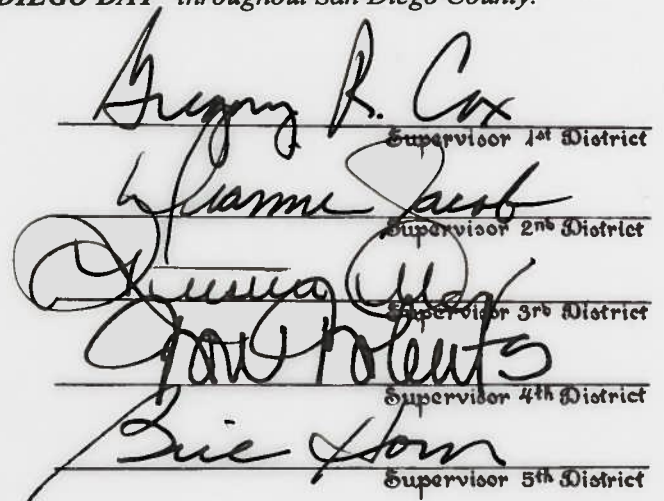 DIEGO DAY" throughout San Diego County.
Gregory R. Cox
Supervisor 1st District
Dianne Jacob
Supervisor 2nd District
Supervisor 3rd District
Ron Roberts
Supervisor 4th District
Bill Horn
Supervisor 5th District